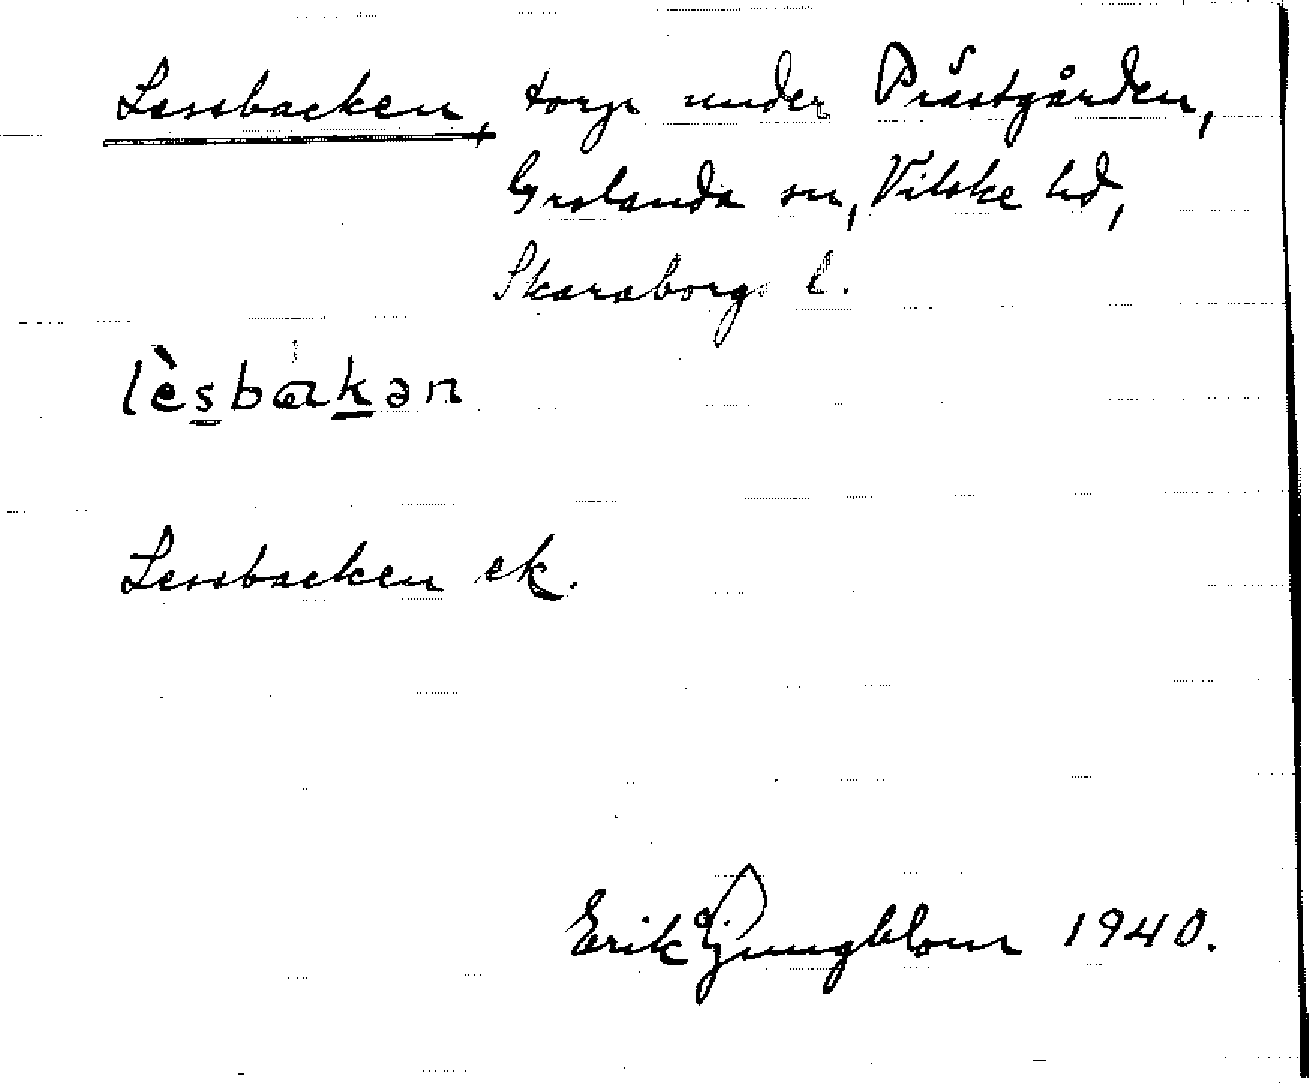 Lessbacken, torp under Prästgården,
Grolanda sn, Vilske hd,
Skaraborgs l.
lèsbakən
Lessbacken ek.
Erik Ljungblom 1940.